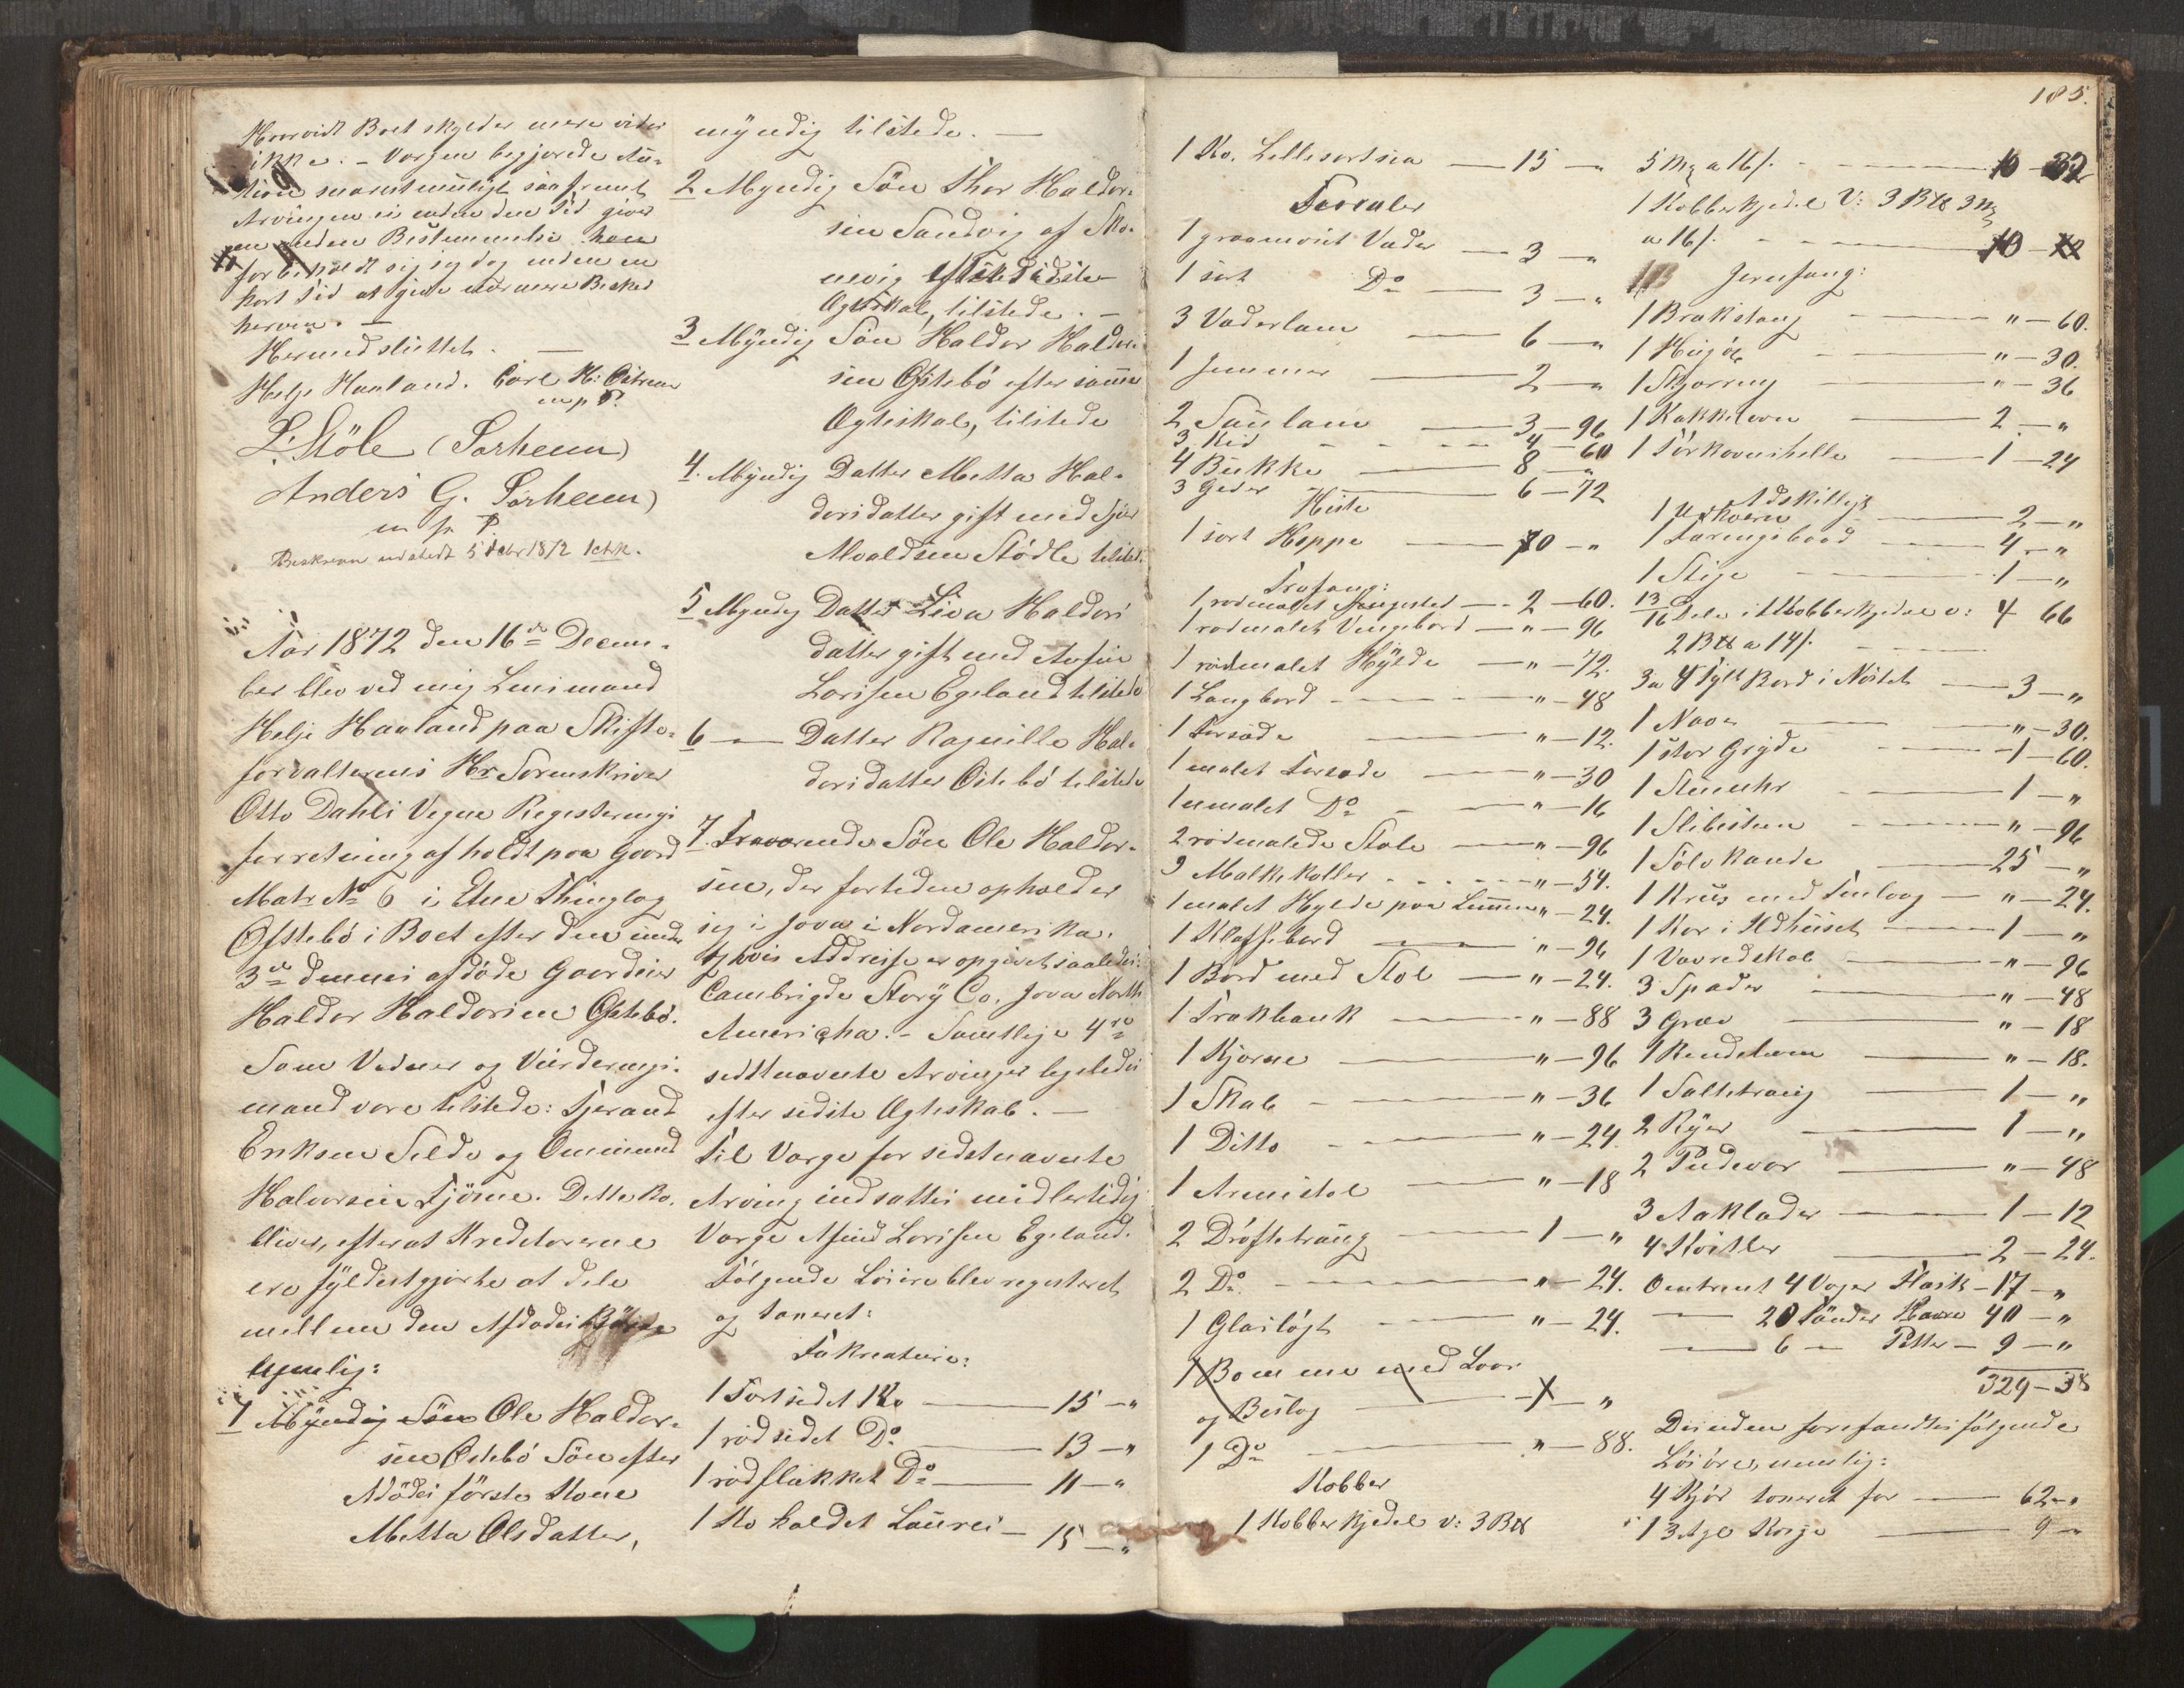 Hvorvidt Boet skylder mere vides
ikke. – Værgen begjærede Au-
tion snarest muligt saafremt
Arvingen ei inden den Tid giver
en anden Bestemmelse, han
forbeholdt sig dog inden en
kort Tid at give nærmere Besked
herom. –
Hermed sluttet. –
Helje Haaland. Carl H: Östrem
m. p. P.
L. Støle (Sørheim)
Anders G. Sørheim)
m. p. P.
Beskreven udstedt 5 Febr 1872
Aar 1872 den 16de Decem-
ber blev ved mig Lensmand
Helje Haaland paa Skifte-
forvalterens Hr. Sorenskriver
Otto Dahls Vegne Registrerings
forretning afholdt paa Gaard
Matr. No 6 i Etne Thinglag
Østebö i Boet efter den under
3de dennes afdöde Gaardeier
Haldor Haldorsen Østebö.
Som Vidner og Vurderings-
mænd vare tilstede: Tjerand
Eriksen Silde og Ommund
Halvorsen Tjörne. Dette Bo
bliver, efterat Kreditorerne
ere fyldestgjorte at dele
mellem den Afdødes Börn
nemlig:
1 Myndig Sön Ole Haldor-
sen Östebö Sön efter
Afdödes förste Kone
Metta Olsdatter,
myndig tilstede. –
2 Myndig Sön Thor Haldor-
sen Sandvig af Sko-
nevig efter sidste
Ægteskab, tilstede. –
3 Myndig Sön Haldor Haldor-
sen Østebö efter samme
Ægteskab, tilstede
4. Myndig Datter Metta Hal-
dorsdatter gift med Sjur
Alvaldsen Stödle tilstede.
5 Myndig Datter Siva Haldors
datter gift med Anfin
Larssen Egeland tilstede
6 — Datter Ragnille Hal-
dorsdatter Östebö tilstede
7. Fraværende Sön Ole Haldor-
sen, der fortiden opholder
sig i Jova i Nordamerika,
hvis Addresse er opgivet saaledes:
Cambrigde Story Co. Jova North
Americha. – Samtlige 4re
sidstnævnte Arvinger ligeledes
efter sidste Ægteskab. –
Til Værge for sidstnævnte
Arving indsattes midlertidig
Værge Asind Larssen Egeland.
Følgende Løsöre blev registreret
og taxeret:
Fækreature:
1 Sortsidet Ko — 15 – "
1 rödsidet Do — 13 – "
1 rödflækket Do — 11 – "
1 Ko kaldet Laurei — 15 – "
185.
1 Ko, Lillesortsia — 15 – "
Smaler
1 graamoret Væder — 3 – "
1 sort Do — 3 – "
3 Væderlam — 6 – "
1 Jemmer — 2 – "
2 Saulam — 3 – 96
3 Kid — 4 – 60
4 Bukke — 8 – "
3 Geder — 6 – 72
Heste
1 sort Hoppe — 70 – "
Træfang:
1 rödmalet — 2 – 60.
1 rødmalet Vengebord — " – 96
1 rødmalet Hylde — " – 72.
1 Langbord — " – 48
1 Forsæde — " – 12.
1 malet Forsæde — " – 30
1 umalet Do — " – 16
2 rødmalede Stole — " – 96
9 Melkekoller — " – 54.
1 malet Hylde paa Lemmen " – 24.
1 Klaffebord — " – 96
1 Bord med Stol — " – 24.
1 Trækbænk — " – 88
1 Kjærne — " – 96
1 Skab — " – 36
1 Ditto — " – 24.
1 Armstol — " – 18
2 Dröftetraug — 1 – "
2 Do. — " – 24.
1 Glasløgt — " – 24.
1 Bomme med Laas
og Beslag — 1 – "
1 Do — " – 88.
Kobber
1 Kobberkjedel v: 3 B℔
5 Mk a 16 s. — 10 – 32
1 Kobberkjedel v: 3 B℔ 3 Mk
a 16 s. — 10 – 12
Jernfang:
1 Brækstang — " – 60.
1 — " – 30.
1 Skjæreng — " – 36
1 Kakkelovn — 2 – "
1 Törkovnshelle — 1 – 24
Adskilligt
1 Urkværn — 2 – "
1 Faringsbaad — 4 – "
1 Stige — 1 – "
13/16 Dele i 1 Kobberkjedel v: 4 66
2 B℔ a 14 s.
3 a 4 Tylt Bord i Nöstet — 3 – "
1 Naver — " – 30.
1 stor Gryde — 1 – 60.
1 Stueuhr — 1 – "
1 Slibesteen — " – 96
1 Sölvkande — 25 – "
1 Krus med Tinlaag — " – 24.
1 Kar i Ildhuset — 1 – "
1 Vævredskab — " – 96
3 Spader — " – 48
3 Grev — " – 18
1 Rendelom — " – 18.
1 Saltetraug — 1 – "
2 Ryer — 1 – "
2 Pudevar — " – 48
3 Aaklæder — 1 – 12
4 Kvitler — 2 – 24.
Omtrent 4 Voger Flæsk – 17 – "
— 20 Tönder Havre 40 – "
— 6 — Potter – 9 – "
329 – 38
Desuden forefandtes følgende
Løsöre, nemlig:
4 Kjör taxeret for — 62 – "
1 3 Agl Kvige — 9 – "